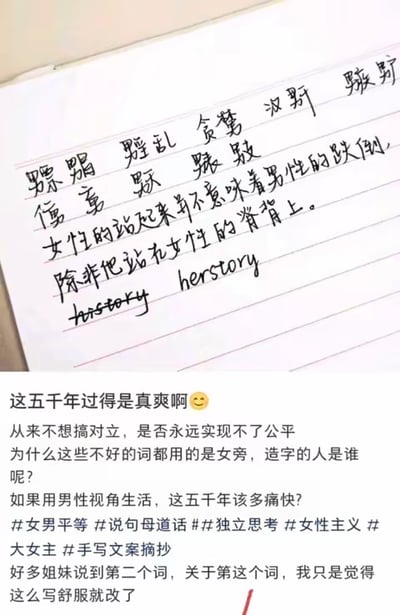 乱 贪 汉
女性的站起来并不意味着男性的跌倒，
除非他站在女性的脊背上。
history herstory
这五千年过得是真爽啊😊
从来不想搞对立，是否永远实现不了公平
为什么这些不好的词都用的是女旁，造字的人是谁
呢？
如果用男性视角生活，这五千年该多痛快？
#女男平等 #说句母道话 ##独立思考 #女性主义 #
大女主 #手写文案摘抄
好多姐妹说到第二个词，关于第这个词，我只是觉得
这么写舒服就改了